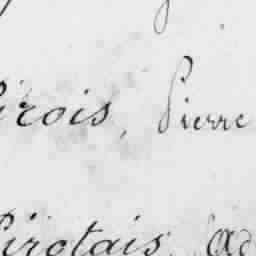 irois, Pierre
irotais, Ad